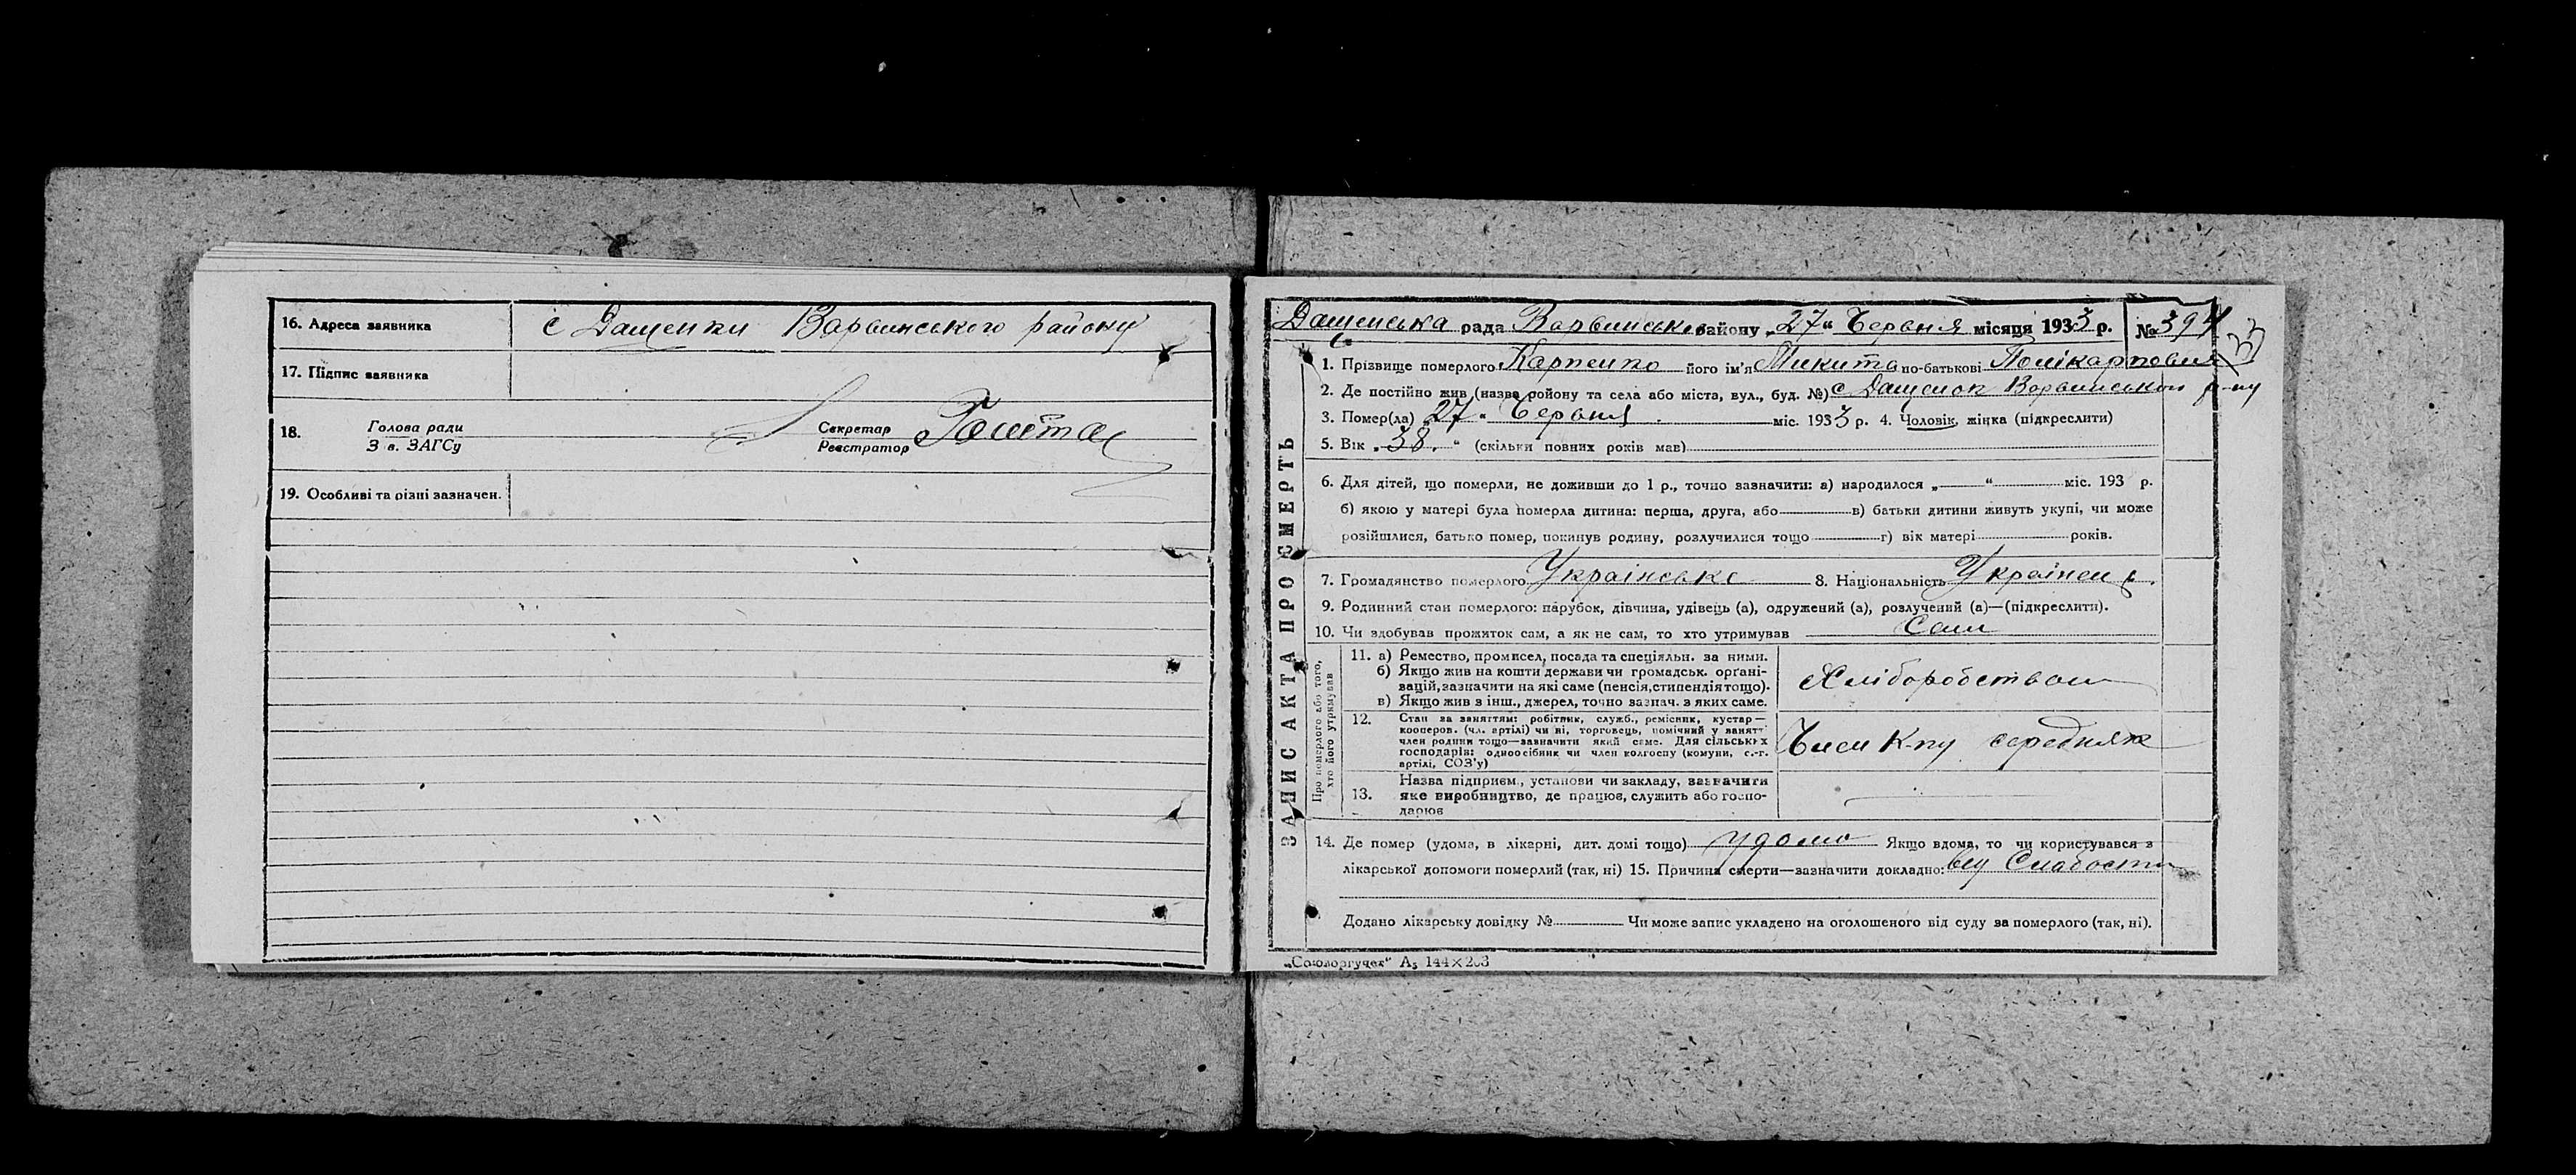 16. Адреса заявника с Дащенки Варвинського району
17. Підпис заявника
18. Голова ради
З в. ЗАГСу
Секретар
Реєстратор
19. Особливі та різні зазначен.
ЗАПИС АКТА ПРО СМЕРТЬ
Дащенська рада Варвинського району „27“ Червня місяця 1933 р. № 394
1. Прізвище померлого Карпенко його ім'я Микита по-батькові Полікарпович
2. Де постійно жив (назва району та села або міста, вул., буд. №) с Дащенок Варвинського р-ну
3. Помер(ла) „27“ Червня міс. 1933 р. 4. Чоловік, жінка (підкреслити)
5. Вік „38“ (скільки повних років мав)
6. Для дітей, що померли, не доживши до 1 р., точно зазначити: а) народилося „ “ міс. 193 р.
б) якою у матері була померла дитина: перша, друга, або в) батьки дитини живуть укупі, чи може
розійшлися, батько помер, покинув родину, розлучилися тощо г) вік матері років.
7. Громадянство померлого Українське 8. Національність Українець.
9. Родинний стан померлого: парубок, дівчина, удівець (а), одружений (а), розлучений (а)—(підкреслити).
10. Чи здобував прожиток сам, а як не сам, то хто утримував Сам
Про померлого або того,
хто його утримував
11. а) Ремество, промисел, посада та спеціяльн. за ними.
б) Якщо жив на кошти держави чи громадськ. органі-
зацій, зазначити на які саме (пенсія, стипендія тощо).
в) Якщо жив з інш., джерел, точно зазнач. з яких саме.
Хліборобством
12. Стан за заняттям: робітник, служб., ремісник, кустар—
кооперов. (чл. артілі) чи ні, торговець, помічний у занятт
член родини тощо—зазначити який саме. Для сільських
господарів: одноосібник чи член колгоспу (комуни, с.-г.
артілі, СОЗ'у)
Член К-пу середняк
13. Назва підприєм., установи чи закладу, зазначити
яке виробництво, де працює, служить або госпо-
дарює
14. Де помер (удома, в лікарні, дит. домі тощо) удома Якщо вдома, то чи користувався з
лікарської допомоги померлий (так, ні) 15. Причина смерти—зазначити докладно: Слабости
Додано лікарську довідку № Чи може запис укладено на оголошеного від суду за померлого (так, ні).
„Союзоргучет“ А₅ 144×203